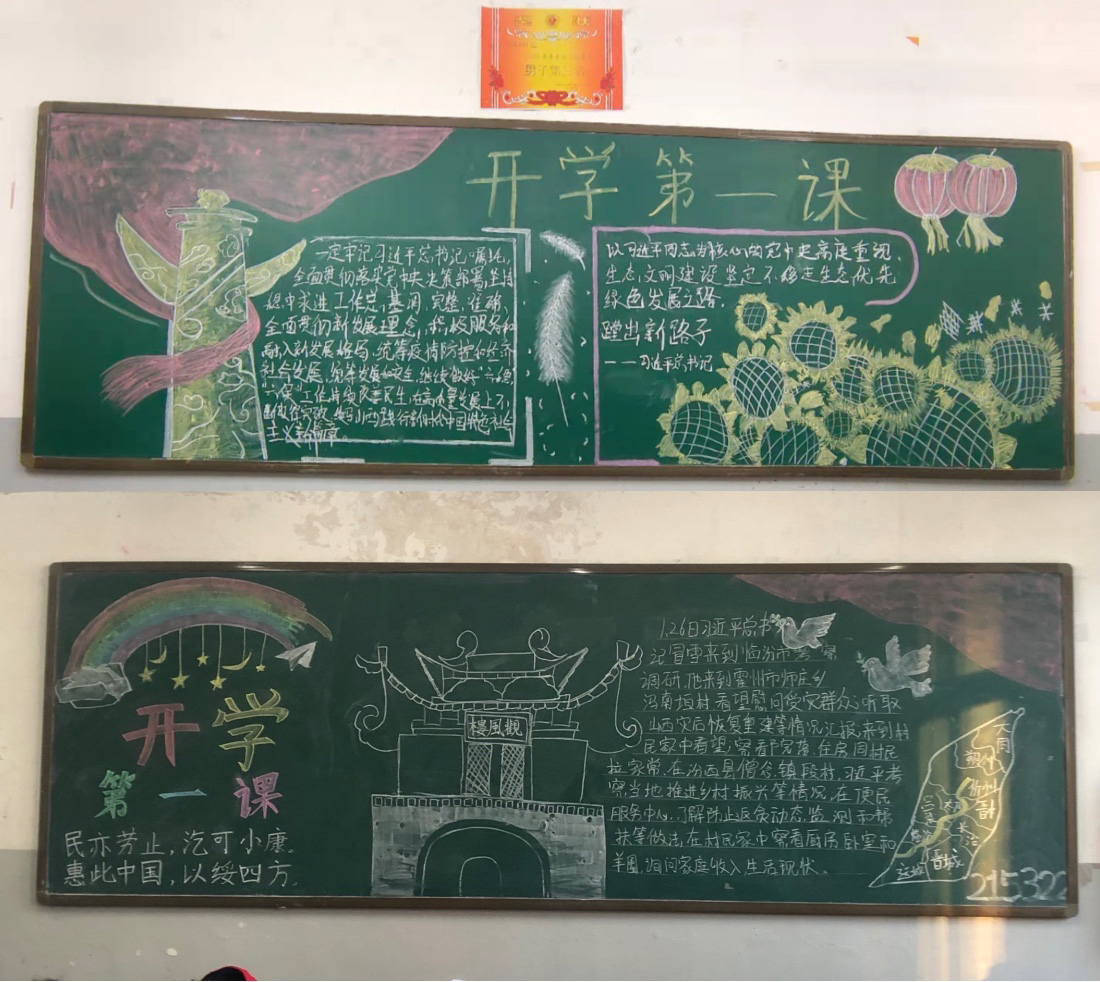 男子第三名
开学第一课
一定牢记习近平总书记嘱托,
全面贯彻落实党中央决策部署坚持
稳中求进工作总基调,完整、准确、
全面贯彻新发展理念,积极服务和
融入新发展格局,统筹疫情防控和经济
社会发展,统筹发展和安全,继续做好"六稳
六保"工作持续改善民生,在高质量发展上不
断取得突破,谱写山西践行新时代中国特色社会
主义新篇章。
以习近平同志为核心的党中央高度重视
生态文明建设坚定不移走生态优先
绿色发展之路,
蹚出新路子
——习近平总书记
开学
第一课
民亦劳止,汔可小康
惠此中国,以绥四方.
樓風觀
1.26日习近平总书
记冒雪来到临汾市考察
调研,他来到霍州市师庄乡
冯南垣村,看望慰问受灾群众,听取
山西灾后恢复重建等情况汇报,来到村
民家中看望,察看院落、住房,同村民
拉家常,在汾西县僧念镇段村,习近平考
察当地推进乡村振兴等情况,在便民
服务中心,了解防止返贫动态监测和帮
扶等做法,在村民家中察看厨房卧室和
羊圈,询问家庭收入生活现状。
大同
朔州
忻州
晋中
长治
临汾
运城
晋城
215322